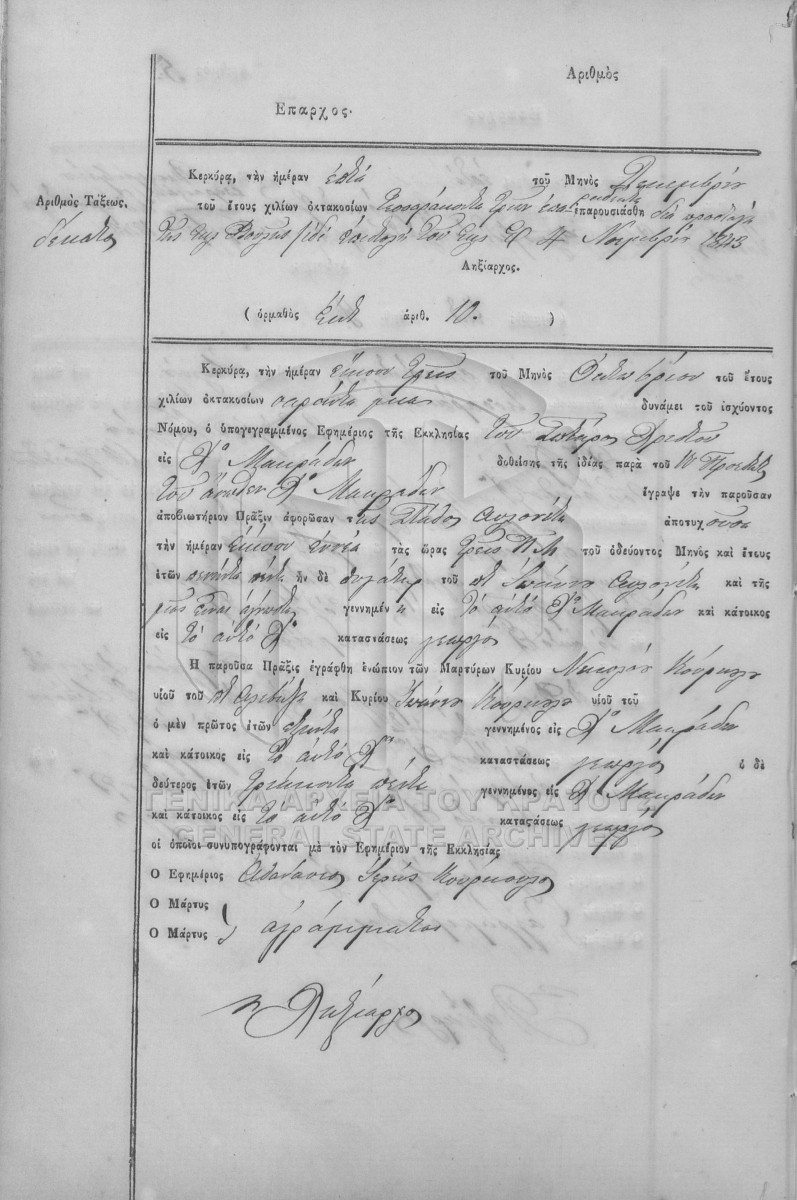 Αριθμὸς
Επαρχος.
Κερκύρᾳ, τὴν ἡμέραν ἑπτά τοῦ Μηνὸς Δεκεμβρίου
Αριθμὸς Τάξεως.
τοῦ ἔτους χιλίων ὀκτακοσίων τεσσαράκοντα τριῶν ἐπαρουσιάσθη διὰ προσταγῆς
δέκατος
τῆς Νοεμβρίου 1843
Ληξίαρχος.
( ὁρμαθὸς ἀριθ. 10. )
Κερκύρᾳ, τὴν ἡμέραν εἴκοσι τρεῖς τοῦ Μηνὸς Οκτωβρίου τοῦ ἔτους
χιλίων ὀκτακοσίων σαράντα μία δυνάμει τοῦ ἰσχύοντος
Νόμου, ὁ ὑπογεγραμμένος Εφημέριος τῆς Εκκλησίας τοῦ Σωτῆρος Χριστοῦ
εἰς Χο Μακράδων δοθείσης τῆς ἰδίας παρὰ τοῦ
τοῦ ἄνωθεν Χο Μακράδων ἔγραψε τὴν παροῦσαν
ἀποβιωτήριον Πρᾶξιν ἀφορῶσαν τῆς Αυλονίτη ἀποτυχοῦσα
τὴν ἡμέραν εἴκοσι ἐννέα τὰς ὥρας τρεῖς Π.Μ τοῦ ὁδεύοντος Μηνὸς καὶ ἔτους
ἐτῶν πενήντα πέντε ἣν δὲ θυγάτηρ τοῦ ποτὲ Ιωάννου Αυλονίτη καὶ τῆς
γεννημένη εἰς τὸ αὐτό Χο Μακράδων καὶ κάτοικος
εἰς τὸ αὐτό Χο καταστάσεως γεωργός
Η παροῦσα Πρᾶξις ἐγράφθη ἐνώπιον τῶν Μαρτύρων Κυρίου Νικολάου Κούρκουλο
υἱοῦ τοῦ καὶ Κυρίου Ιωάννου Κούρκουλο υἱοῦ τοῦ
ὁ μὲν πρῶτος ἐτῶν γεννημένος εἰς Χο Μακράδων
καὶ κάτοικος εἰς τὸ αὐτό Χο καταστάσεως γεωργός ὁ δὲ
δεύτερος ἐτῶν τριάκοντα πέντε γεννημένος εἰς Χο Μακράδων
καὶ κάτοικος εἰς τὸ αὐτό Χο καταστάσεως γεωργός
οἱ ὁποῖοι συνυπογράφονται μὲ τὸν Εφημέριον τῆς Εκκλησίας
Ο Εφημέριος Αθανάσιος Ιερεύς Κούρκουλος
Ο Μάρτυς
Ο Μάρτυς ἀγράμματοι
Ληξίαρχος
ΓΕΝΙΚΑ ΑΡΧΕΙΑ ΤΟΥ ΚΡΑΤΟΥΣ
GENERAL STATE ARCHIVES